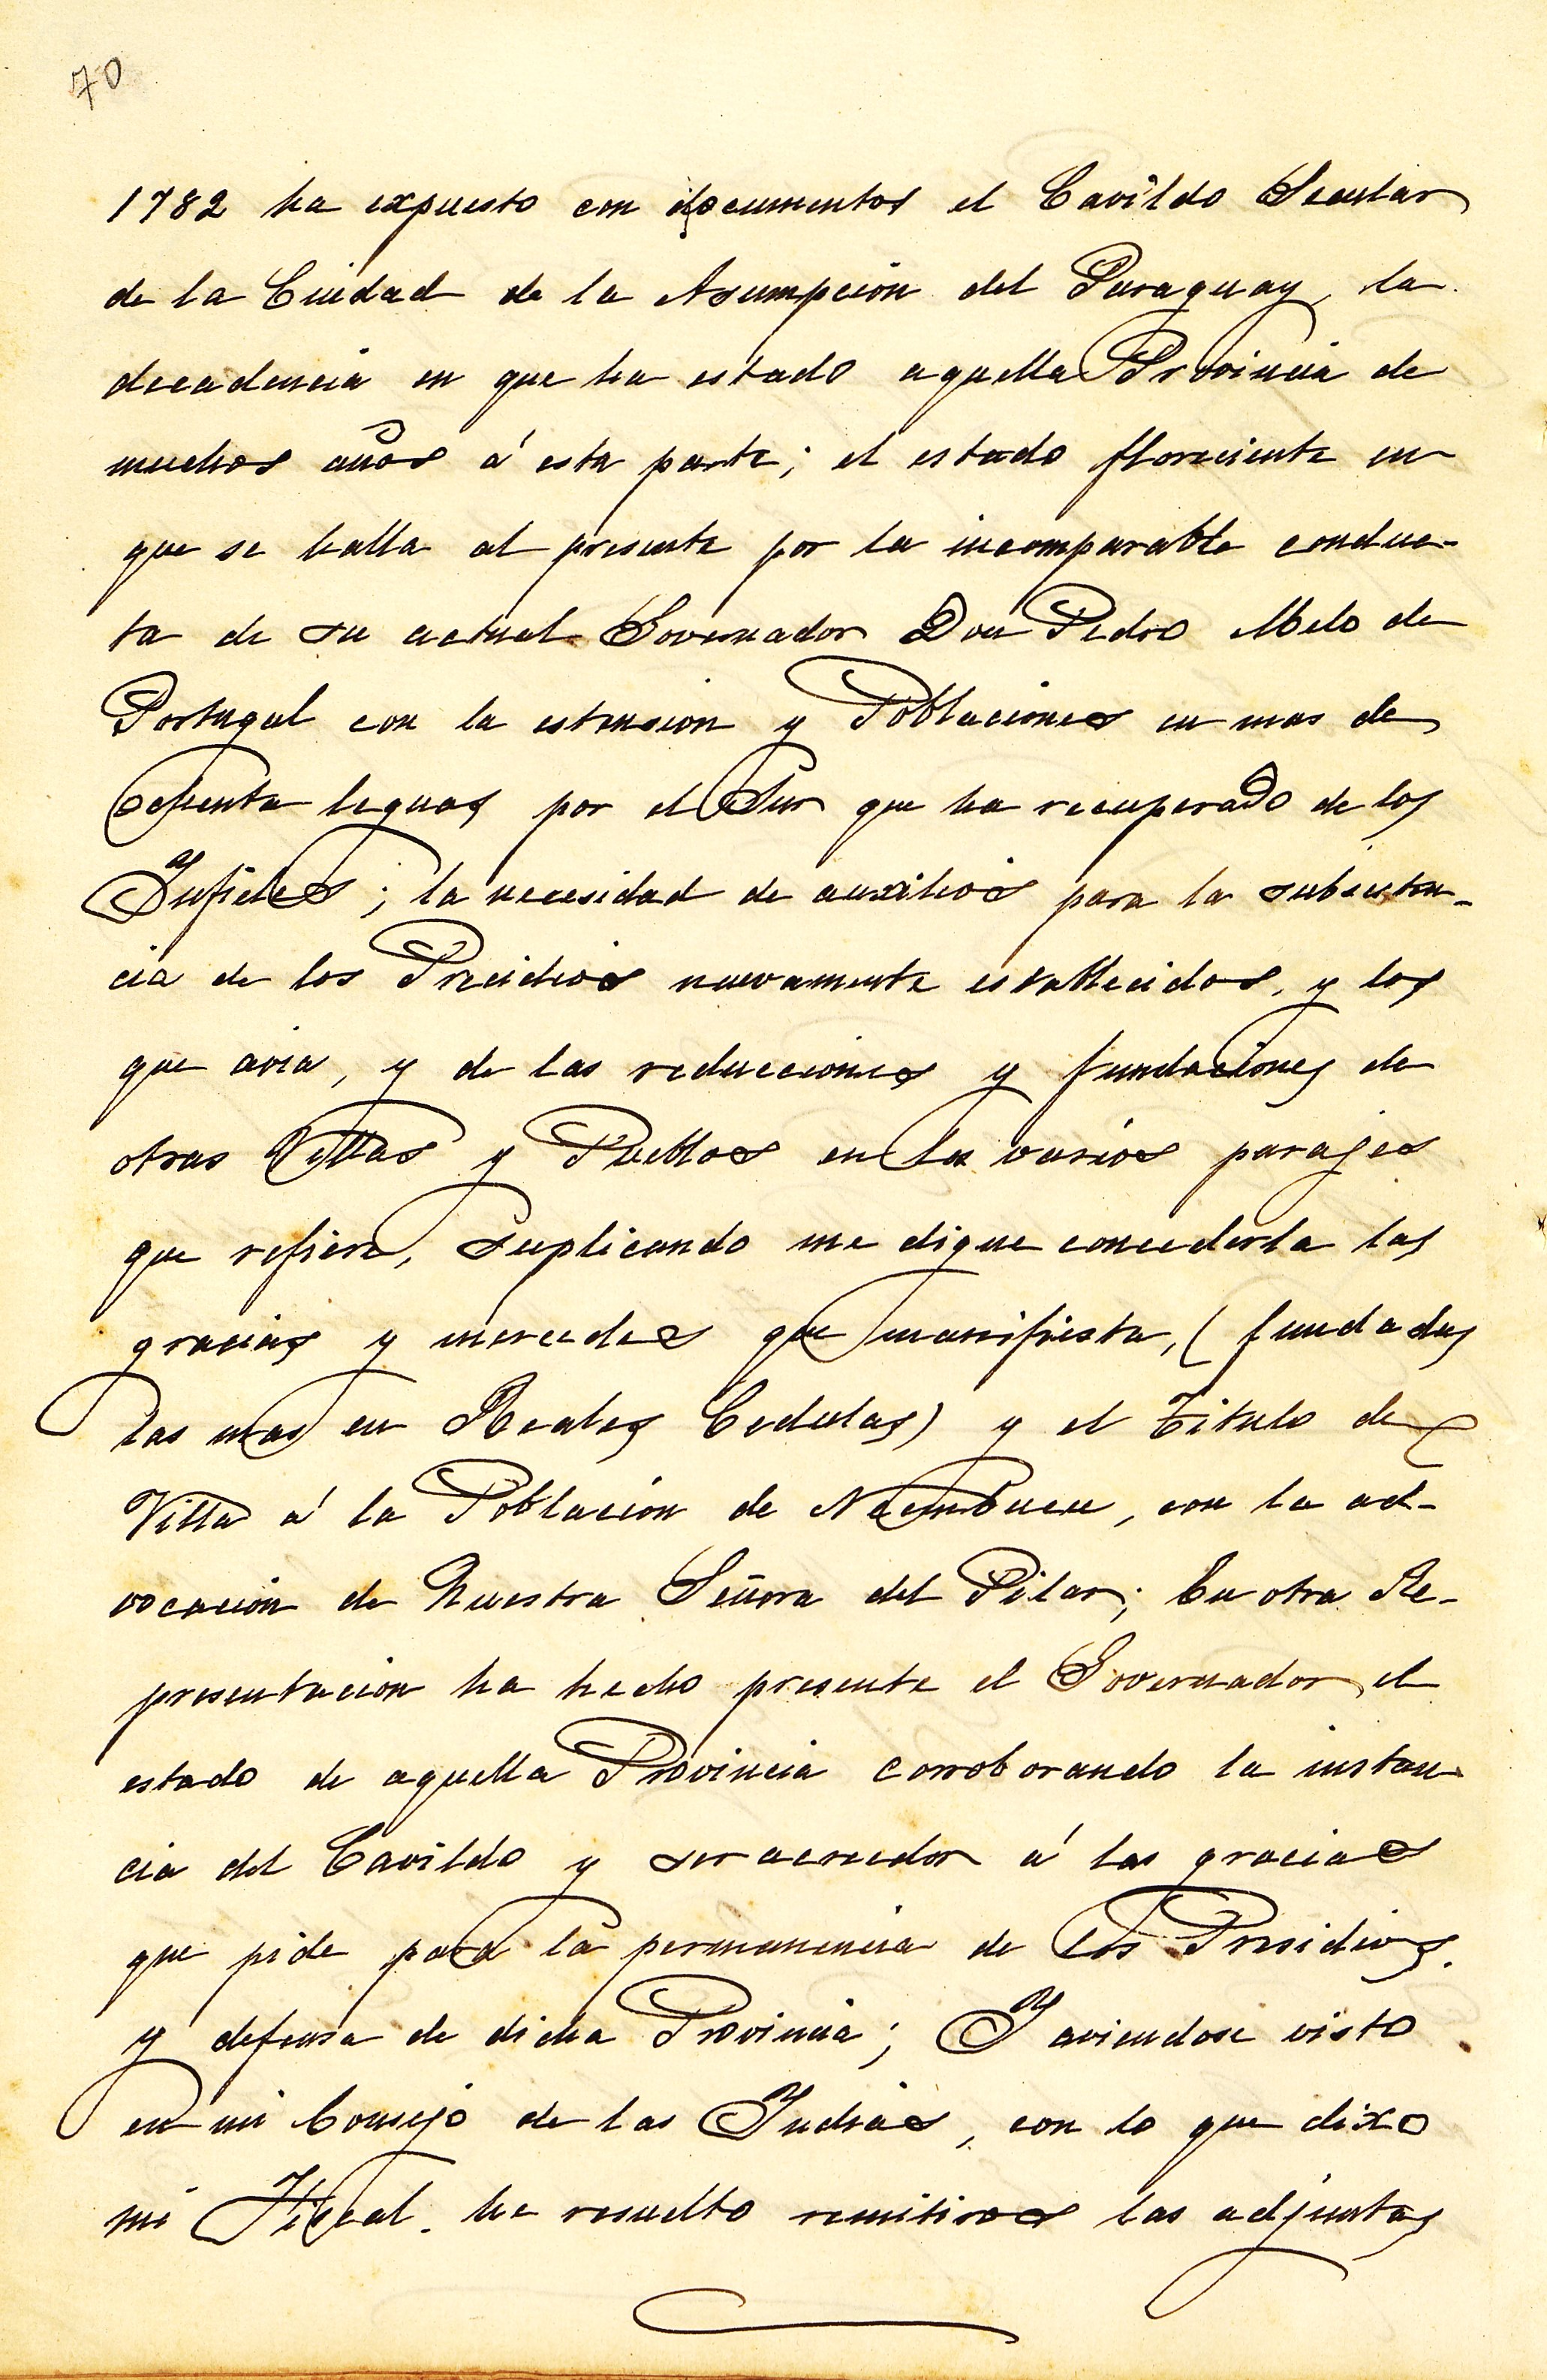 70
1782 ha expuesto con documentos el Cavildo Secular
de la Ciudad de la Asumpcion del Paraguay, la
decadencia en que ha estado aquella Provincia de
muchos años á esta parte; el estado floreciente en
que se halla al presente por la incomparable conduc-
ta de su actual Governador Don Pedro Melo de
Portugal con la estension y Poblaciones en mas de
ochenta leguas por el Sur que ha recuperado de los
Ynfieles; la necesidad de auxilios para la subsisten-
cia de los Precidios nuevamente establecidos, y los
que avia, y de las reducciones y fundaciones de
otras Villas y Pueblos en los varios parajes
que refiere, suplicando me digne concederla las
gracias y mercedes que manifiesta, (fundadas
las mas en Reales Cedulas) y el Titulo de
Villa á la Poblacion de Neembucu, con la ad-
vocacion de Nuestra Señora del Pilar; En otra Re-
presentacion ha hecho presente el Governador el
estado de aquella Provincia corroborando la instan-
cia del Cavildo y ser acreedor á las gracias
que pide para la permanencia de los Presidios.
y defensa de dicha Provincia; Y aviendose visto
en mi Consejo de las Yndias, con lo que dixo
mi Fiscal. he resuelto remitiros las adjuntas